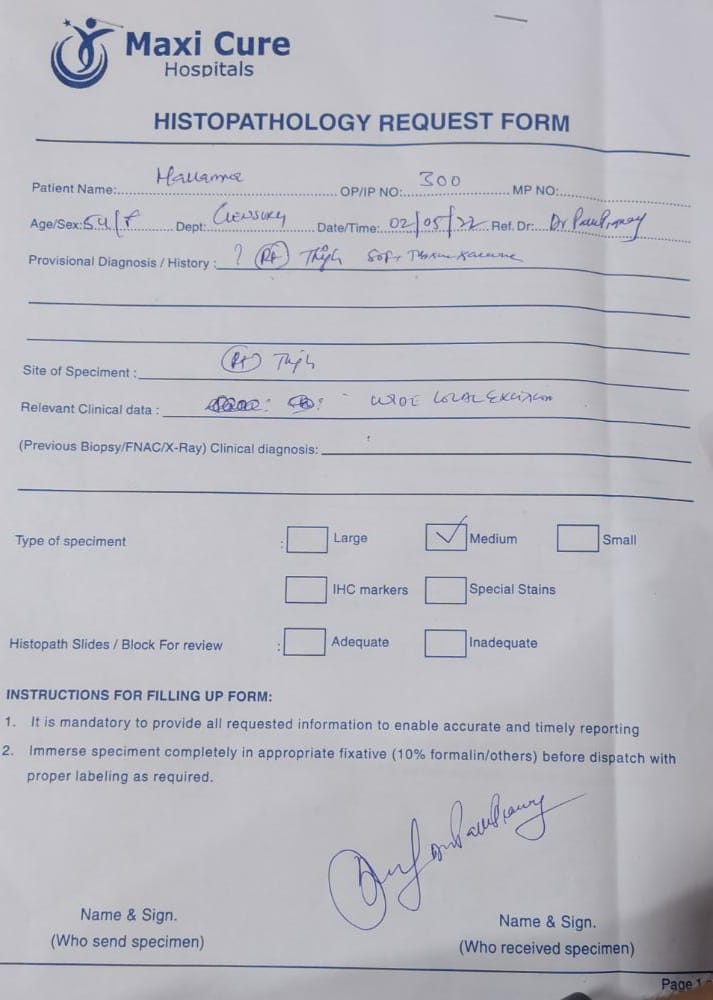 Maxi Cure
Hospitals
HISTOPATHOLOGY REQUEST FORM
Patient Name: OP/IP NO: 300 MP NO:
Age/Sex: 54/F Dept: Date/Time: 02/05/22 Ref. Dr: Dr
Provisional Diagnosis / History : ? Rt Thigh Soft
Site of Specimen : Rt Thigh
Relevant Clinical data : WIDE LOCAL EXCISION
(Previous Biopsy/FNAC/X-Ray) Clinical diagnosis:
Type of speciment : Large Medium Small
IHC markers Special Stains
Histopath Slides / Block For review : Adequate Inadequate
INSTRUCTIONS FOR FILLING UP FORM:
1. It is mandatory to provide all requested information to enable accurate and timely reporting
2. Immerse speciment completely in appropriate fixative (10% formalin/others) before dispatch with
proper labeling as required.
Name & Sign.
(Who send specimen)
Name & Sign.
(Who received specimen)
Page 1